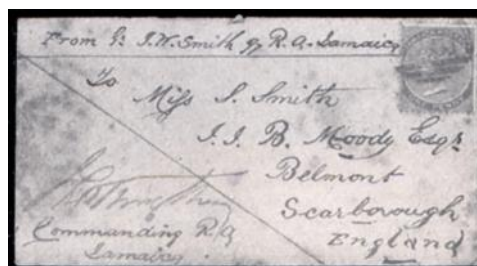 From Gr J. W. Smith 9/7 R.A. Jamaica
To
Miss S. Smith
J. J. B. Moody Esqr
Belmont
Scarborough
England
Commanding R.A
Jamaica